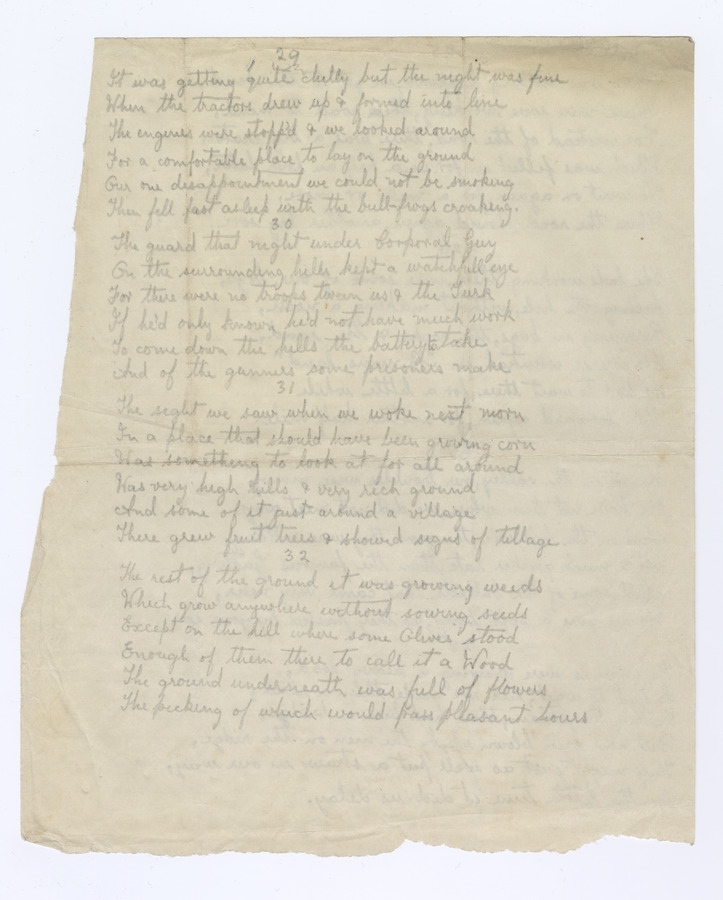 29
It was getting quite chilly but the night was fine
When the tractors drew up & formed into line
The engines were stopp'd & we looked around
For a comfortable place to lay on the ground
Our one disappointment we could not be smoking
Then fell fast asleep with the bull-frogs croaking.
30
The guard that night under Corporal Guy
On the surrounding hills kept a watchfull eye
For there were no troops twean us & the Turk
If he'd only known he'd not have much work
To come down the hills the battery to take
And of the gunners some prisoners make
31
The sight we saw when we woke next morn
In a place that should have been growing corn
Was something to look at for all around
Was very high hills & very rich ground
And some of it just around a village
There grew fruit trees & showed signs of tillage
32
The rest of the ground it was growing weeds
Which grow anywhere without sowing seeds
Except on the hill where some Olives stood
Enough of them there to call it a Wood
The ground underneath was full of flowers
The picking of which would pass pleasant hours